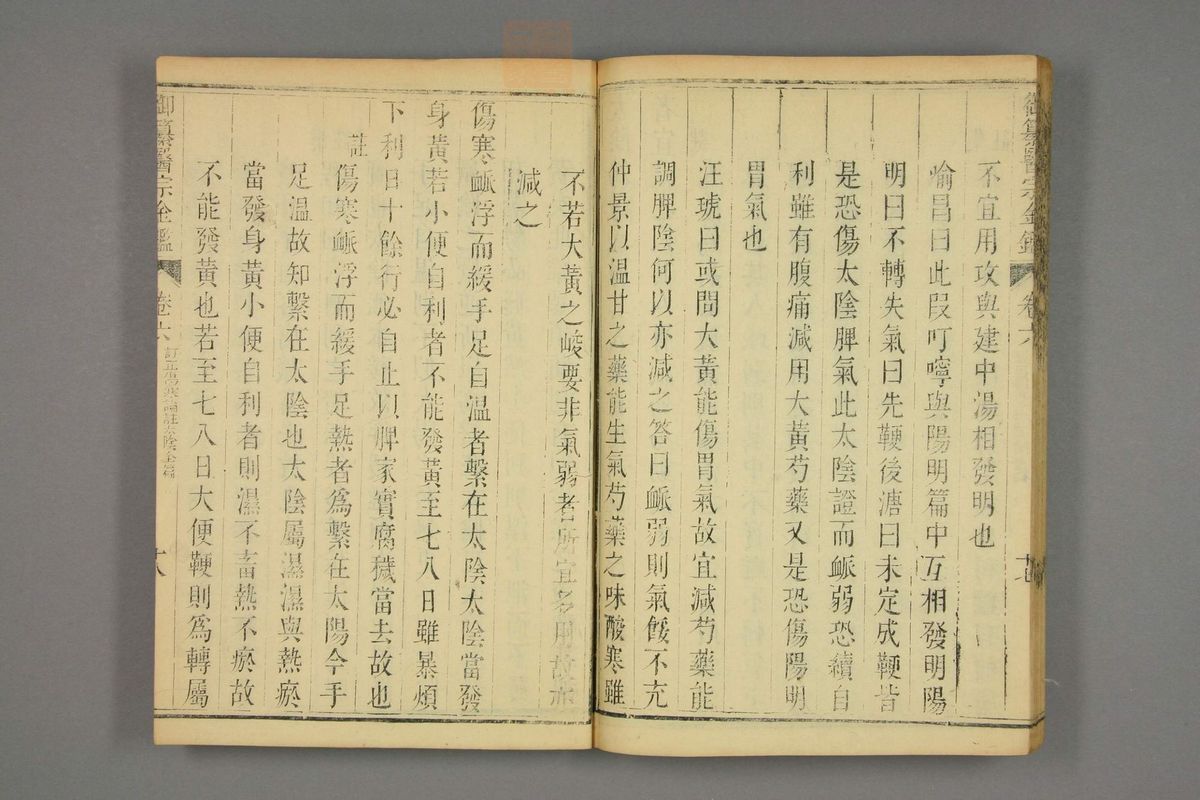 御纂醫宗金鑑 卷六
不宜用攻與建中湯相發明也
喻昌曰此段叮嚀與陽明篇中互相發明陽
明曰不轉失氣曰先鞕後溏曰未定成鞕皆
是恐傷太陰脾氣此太陰證而衇弱恐續自
利雖有腹痛減用大黃芍藥又是恐傷陽明
胃氣也
汪琥曰或問大黃能傷胃氣故宜減芍藥能
調脾陰何以亦減之答曰衇弱則氣餒不充
仲景以溫甘之藥能生氣芍藥之味酸寒雖
不若大黃之峻要非氣弱者所宜多用故亦
減之
傷寒衇浮而緩手足自溫者繫在太陰太陰當發
身黃若小便自利者不能發黃至七八日雖暴煩
下利日十餘行必自止以脾家實腐穢當去故也
註
傷寒衇浮而緩手足熱者爲繫在太陽今手
足溫故知繫在太陰也太陰屬濕濕與熱瘀
當發身黃小便自利者則濕不畜熱不瘀故
不能發黃也若至七八日大便鞕則爲轉屬
御纂醫宗金鑑 卷六 訂正傷寒論註太陰全篇 六